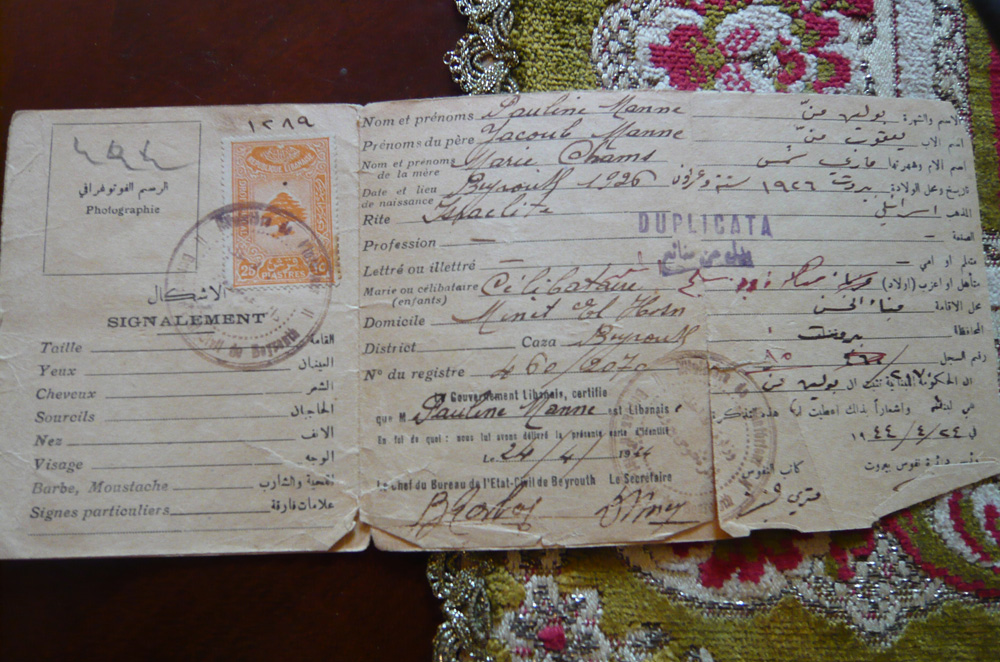 ١٢٨٩
الرسم الفوتوغرافي
Photographie
25 PIASTRES
الاشكال
SIGNALEMENT
Taille القامة
Yeux العينان
Cheveux الشعر
Sourcils الحاجبان
Nez الانف
Visage الوجه
Barbe, Moustache اللحية والشارب
Signes particuliers علامات فارقة
Nom et prénoms Pauline Manne
Prénoms du père Jacoub Manne
Nom et prénoms de la mère Marie Chams
Date et lieu de naissance Beyrouth 1926
Rite Israelite
Profession —
Lettré ou illettré —
Marie ou célibataire (enfants) Célibataire
Domicile Minet El Hosn
District Caza Beyrouth
N° du registre 460/2070
Le Gouvernement Libanais, certifie
que M Pauline Manne est Libanaise
En foi de quoi: nous lui avons délivré la présente carte d'identité
Le 24/4/1944
Le Chef du Bureau de l'Etat-Civil de Beyrouth Le Secrétaire
DUPLICATA
الاسم والشهرة بولين منّ
اسم الاب يعقوب منّ
اسم الام وشهرتها ماري شمس
تاريخ ومحل الولادة بيروت ١٩٢٦ ستة وعشرون
المذهب اسرائيلي
الصنعة
متعلم او امي
متأهل او اعزب (اولاد)
محل الاقامة ميناء الحسن
المحافظة بيروت
رقم السجل
ان الحكومة اللبنانية تثبت ان بولين منّ
هي لبنانية واشعاراً بذلك اعطيت لها هذه التذكرة
في ٢٤/٤/١٩٤٤
دائرة نفوس بيروت
كاتب النفوس